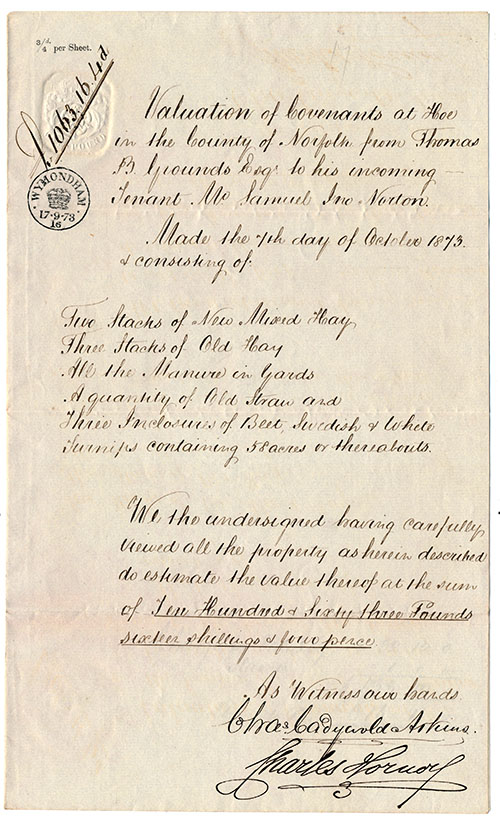 3/d/4 per Sheet.
£1063.16.4d
WYMONDHAM
17·9·73
16
Valuation of Covenants at Hoe
in the County of Norfolk from Thomas
B. Grounds Esqr. to his incoming
Tenant Mr Samuel Jno Norton.
Made the 7th day of October 1873.
& consisting of.
Two Stacks of New Mixed Hay
Three Stacks of Old Hay
All the Manure in Yards
A quantity of Old Straw and
Three Inclosures of Beet, Swedish & White
Turnips containing 58 acres or thereabouts.
We the undersigned having carefully
viewed all the property as herein described
do estimate the value thereof at the sum
of Ten Hundred & Sixty three Pounds
sixteen shillings & four pence.
As Witness our hands.
Chas.
Charles